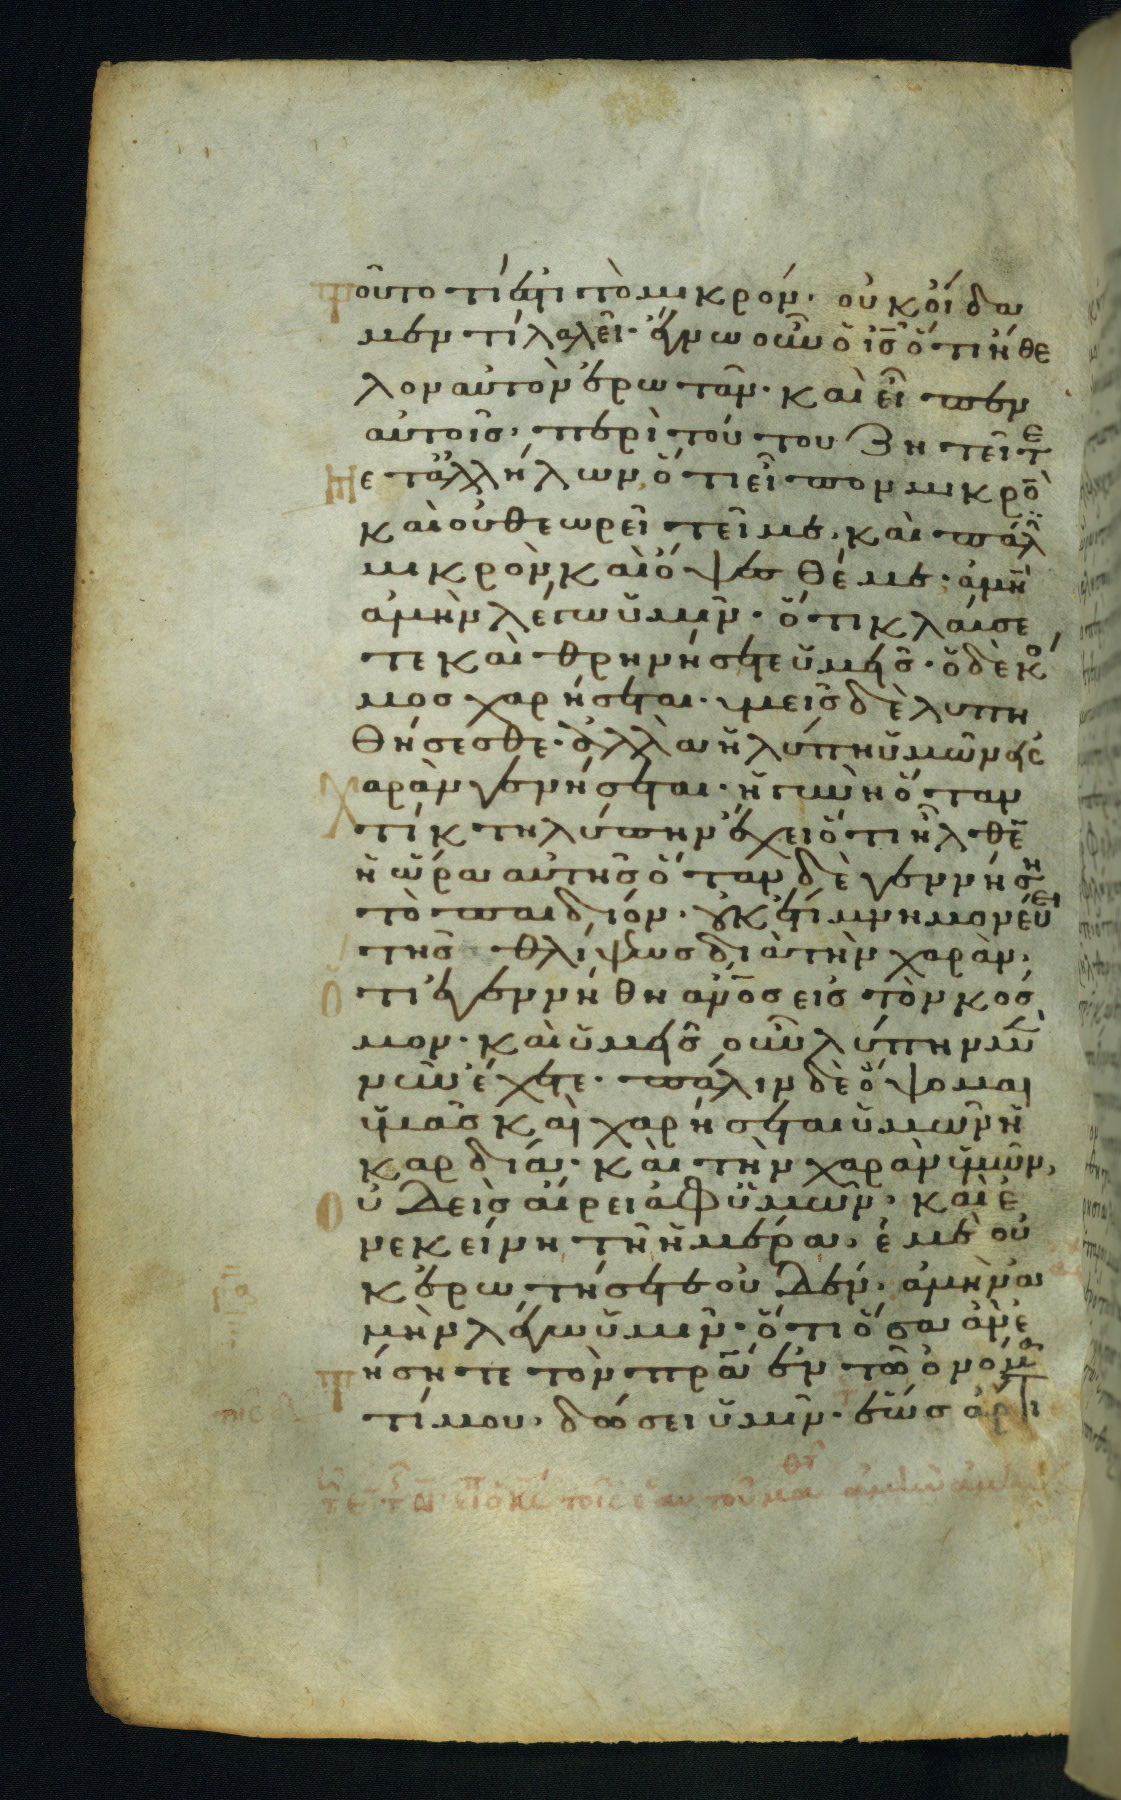 τοῦτο τί ἐστι τὸ μικρόν· οὐκ οἴδα
μεν τί λαλεῖ· ἔγνω οὖν ὁ ι̅ς̅ ὅτι ἤθε
λον αὐτὸν ἐρωτᾶν· καὶ εἶπεν
αὐτοῖς· περὶ τούτου ζητεῖτε
μετ ἀλλήλων, ὅτι εἶπον μικρὸ
καὶ οὐ θεωρεῖτε με, καὶ πάλι
μικρὸν καὶ ὄψεσθέ με· ἀμὴ
ἀμὴν λέγω ὑμῖν· ὅτι κλαύσε
τε καὶ θρηνήσετε ὑμεῖς· ὁ δὲ κό
μος χαρήσεται· ὑμεῖς δὲ λυπη
θήσεσθε· ἀλλὰ ἡ λύπη ὑμῶν εἰς
χαρὰν γενήσεται· ἡ γυνὴ ὅταν
τίκτη λύπην ἔχει ὅτι ἦλθε
ἡ ὥρα αὐτῆς ὅταν δὲ γεννήση
τὸ παιδίον· οὐκέτι μνημονεύει
τῆς θλίψεως διὰ τὴν χαρὰν,
ὅτι ἐγεννήθη α̅ν̅ο̅ς εἰς τὸν κόσ
μον· καὶ ὑμεῖς οὖν λύπην μὲν
νῦν ἔχετε· πάλιν δὲ ὄψομαι
ὑμᾶς καὶ χαρήσεται ὑμῶν ἡ
καρδία· καὶ τὴν χαρὰν ὑμῶν,
οὐδεὶς αἴρει ἀφ ὑμῶν· καὶ ἐ
ν ἐκείνη τῆ ἡμέρα, ἐμὲ οὐ
κ ἐρωτήσετε οὐδέν· ἀμὴν ἀ
μὴν λέγω ὑμῖν· ὅτι ὅσα ἂν αἰ
τήσητε τὸν π̅ρ̅α̅ ἐν τῶ ὀνόμα
τί μου, δώσει ὑμῖν· ἕως ἄρτι